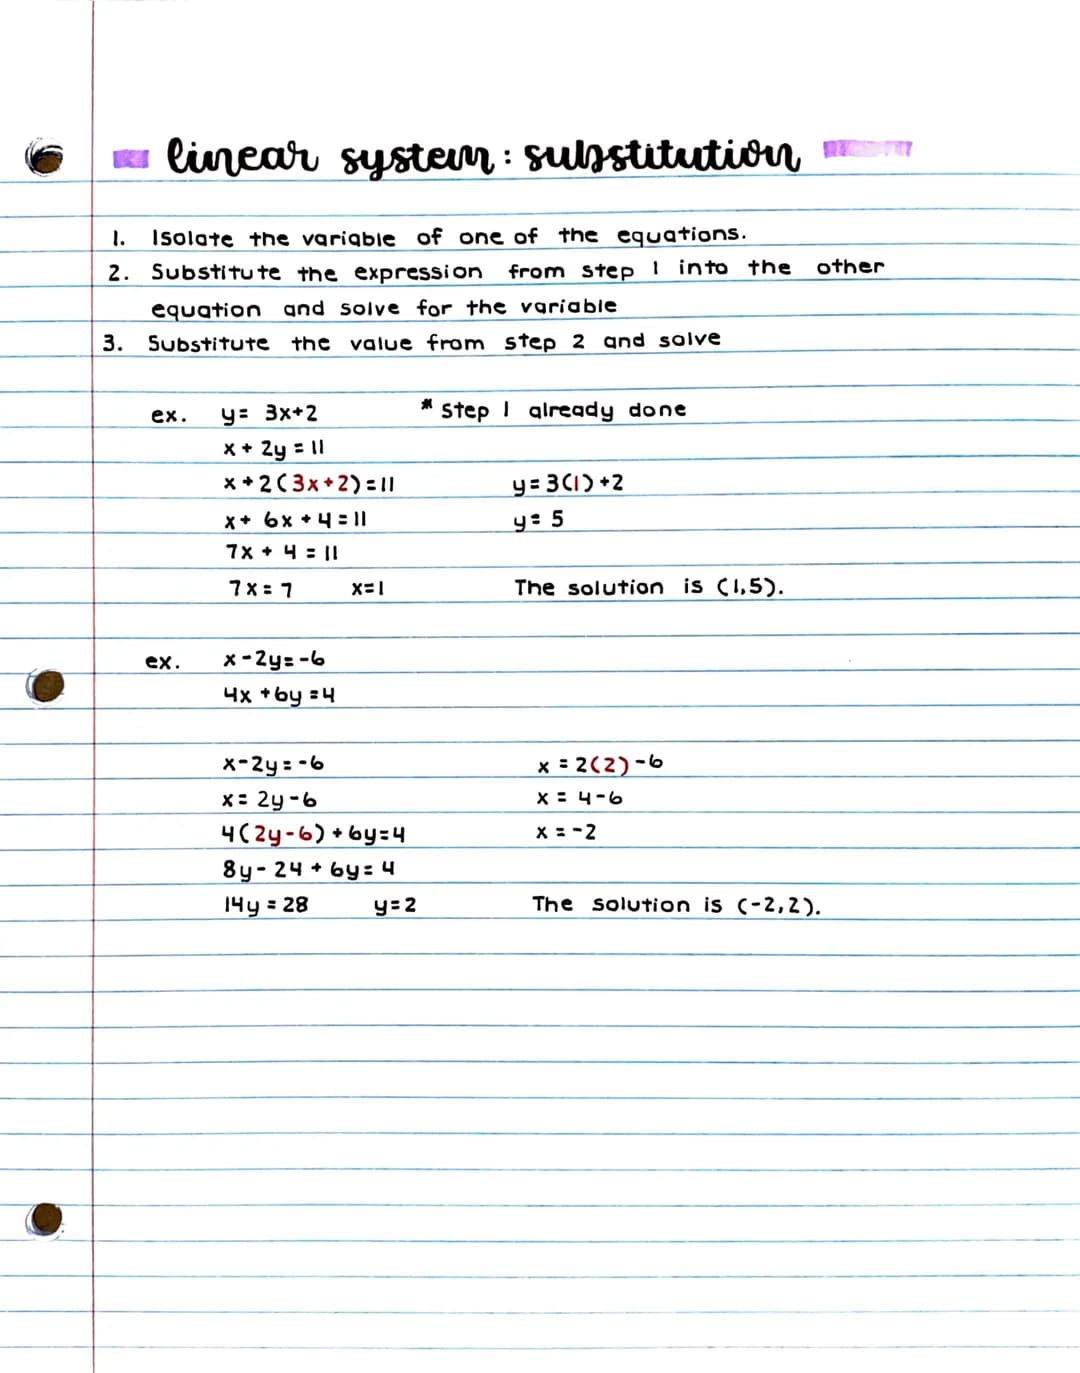 linear system: substitution
1. Isolate the variable of one of the equations.
2. Substitute the expression from step 1 into the other
equation and solve for the variable
3. Substitute the value from step 2 and solve
ex. y= 3x+2 * Step 1 already done
x + 2y = 11
x + 2(3x+2)=11 y= 3(1)+2
x + 6x + 4 = 11 y= 5
7x + 4 = 11
7x = 7 x=1 The solution is (1,5).
ex. x-2y=-6
4x +6y =4
x-2y=-6 x = 2(2)-6
x= 2y-6 x = 4-6
4(2y-6)+6y=4 x = -2
8y- 24 + 6y= 4
14y = 28 y=2 The solution is (-2,2).